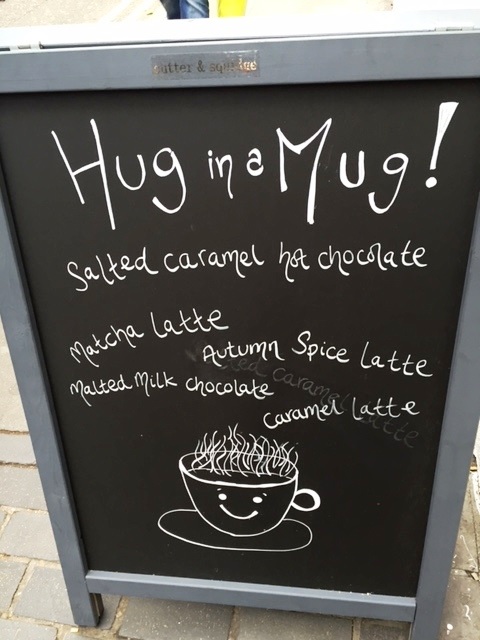 & 
Hug in a Mug!
Salted caramel hot chocolate
Matcha Latte
Autumn Spice Latte
Malted Milk chocolate
caramel Latte